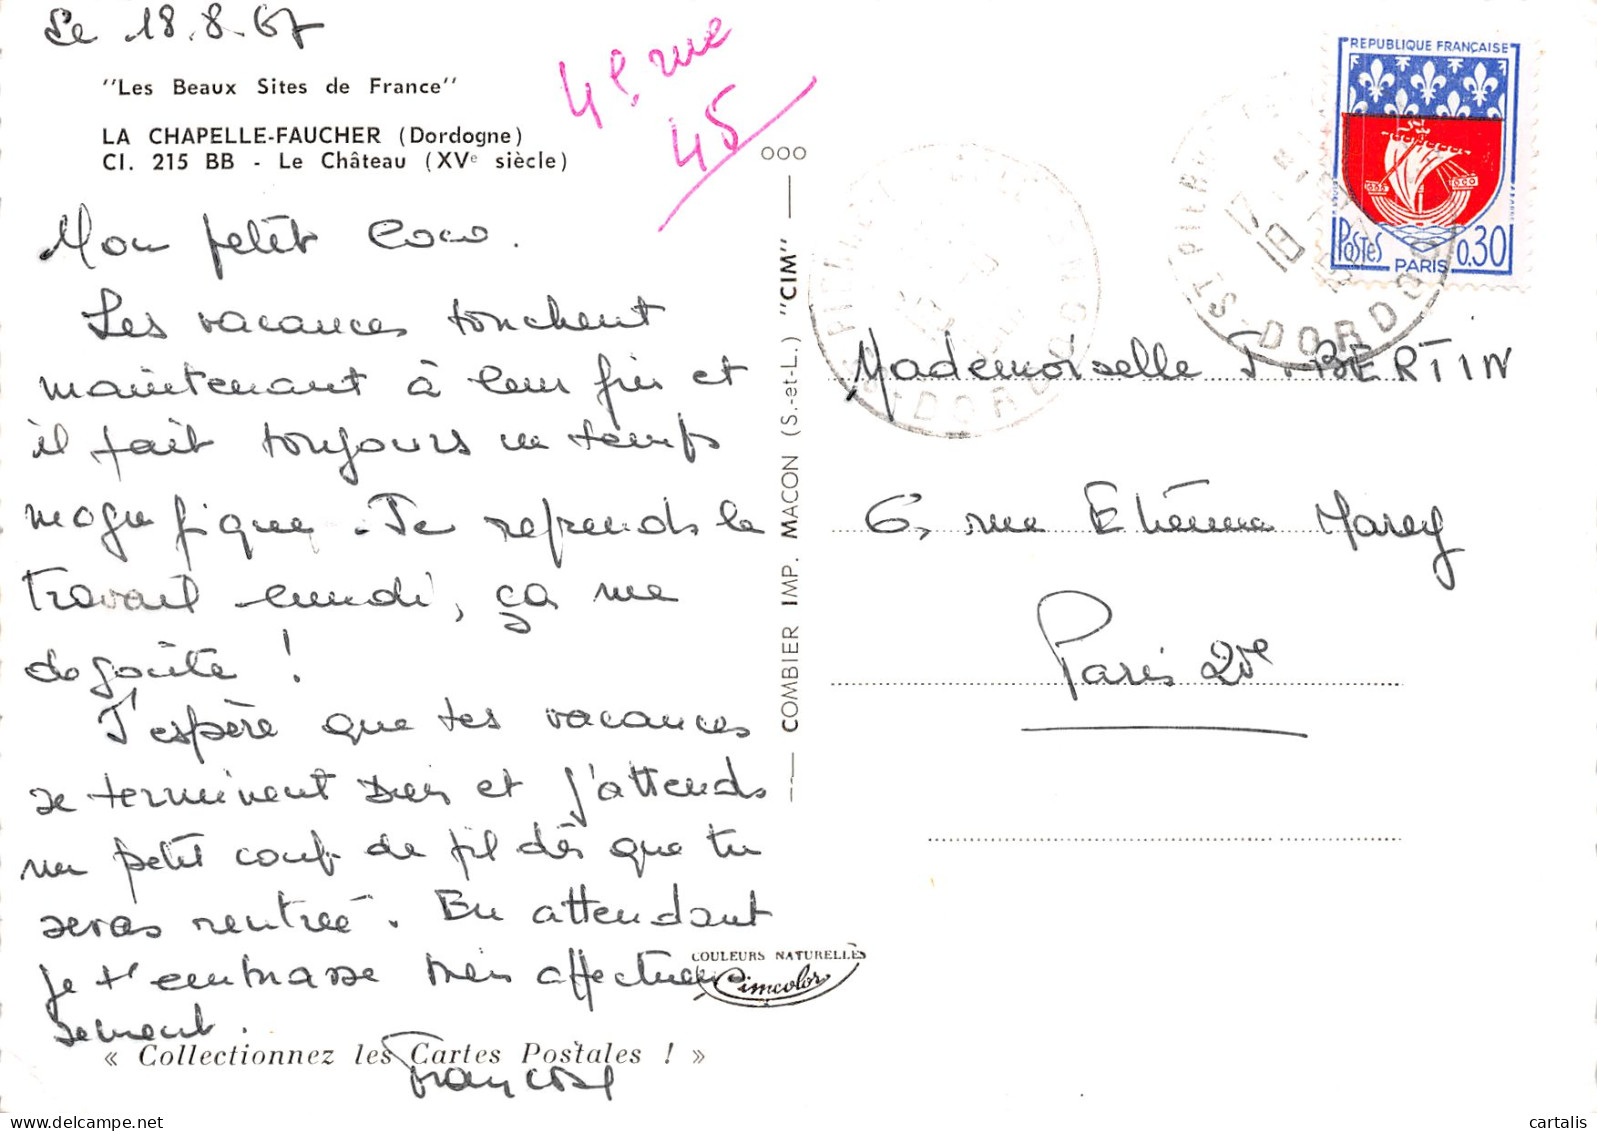 Le 18.8.67
"Les Beaux Sites de France"
LA CHAPELLE-FAUCHER (Dordogne)
CI. 215 BB - Le Château (XVe siècle)
4e rue
45
Mon petit Coco.
Les vacances touchent
maintenant à leur fin et
il fait toujours un temps
magnifique. Je reprends le
travail lundi, ça me
dégoûte !
J'espère que tes vacances
se terminent bien et j'attends
un petit coup de fil dès que tu
seras rentrée. En attendant
je t'embrasse très affectueu
sement.
Françoise
« Collectionnez les Cartes Postales ! »
COULEURS NATURELLES
Cimcolor
COMBIER IMP. MACON (S.-et-L.) "CIM"
REPUBLIQUE FRANÇAISE
POSTES
PARIS
0,30
DORDOGNE
Mademoiselle J. BERTIN
6, rue Etienne Marey
Paris 20e
cartalis